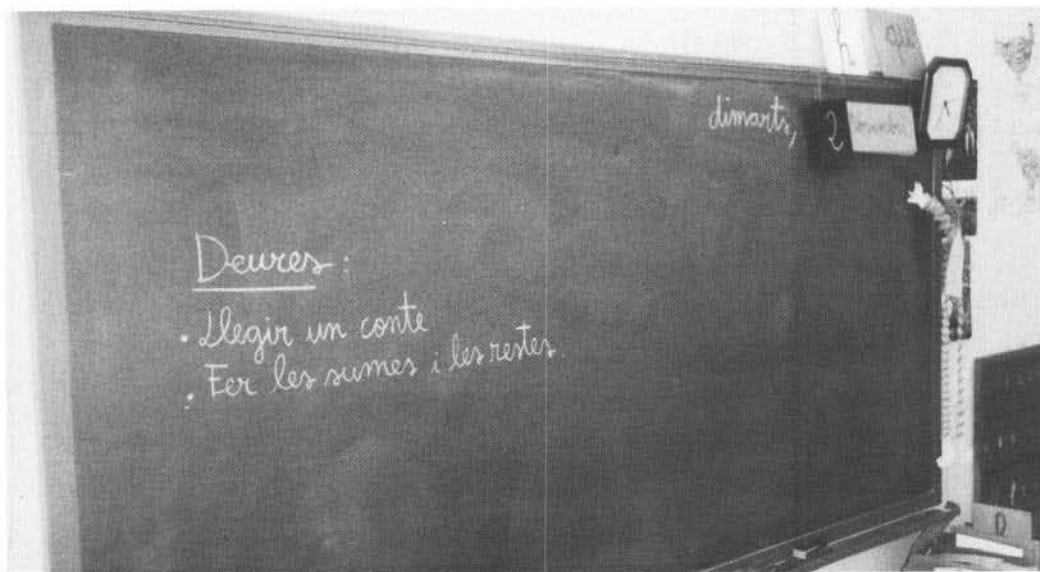 dimarts, 2 Novembre
Deures:
• Llegir un conte
• Fer les sumes i les restes.